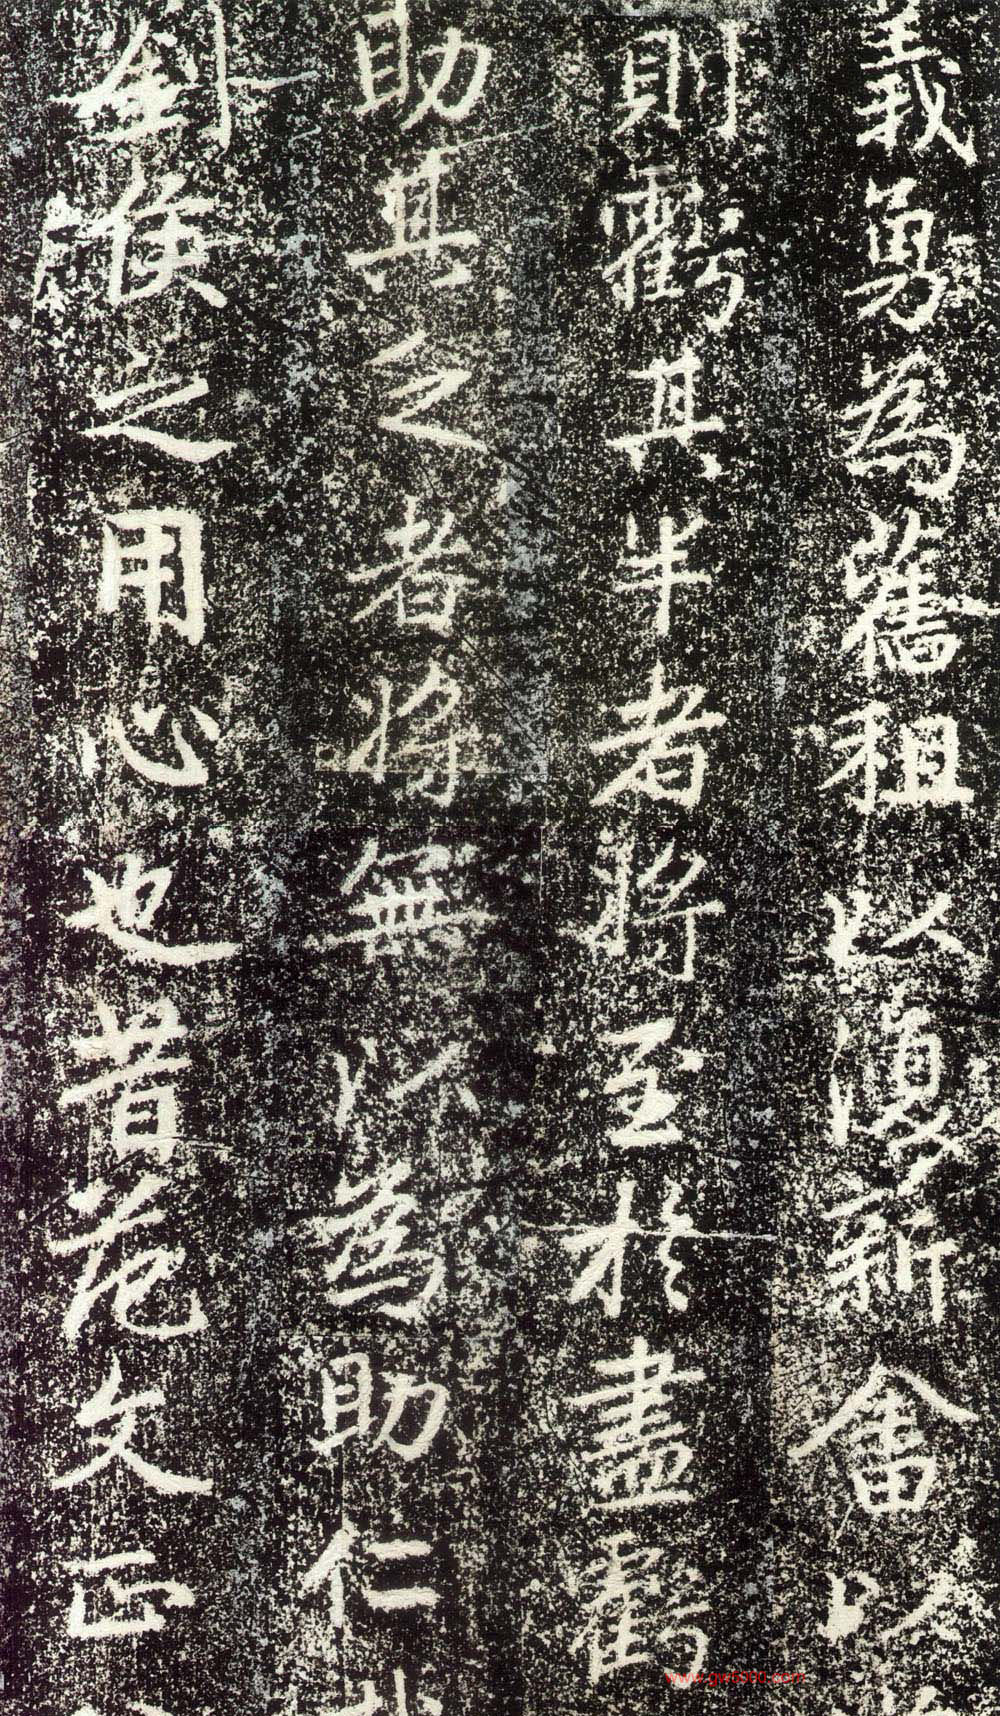 義勇為舊租以復新畬以
則虧其半者將至於盡虧
助其之者將無以為助仁
劉侯之用心也昔范文正
www.gw8000.com